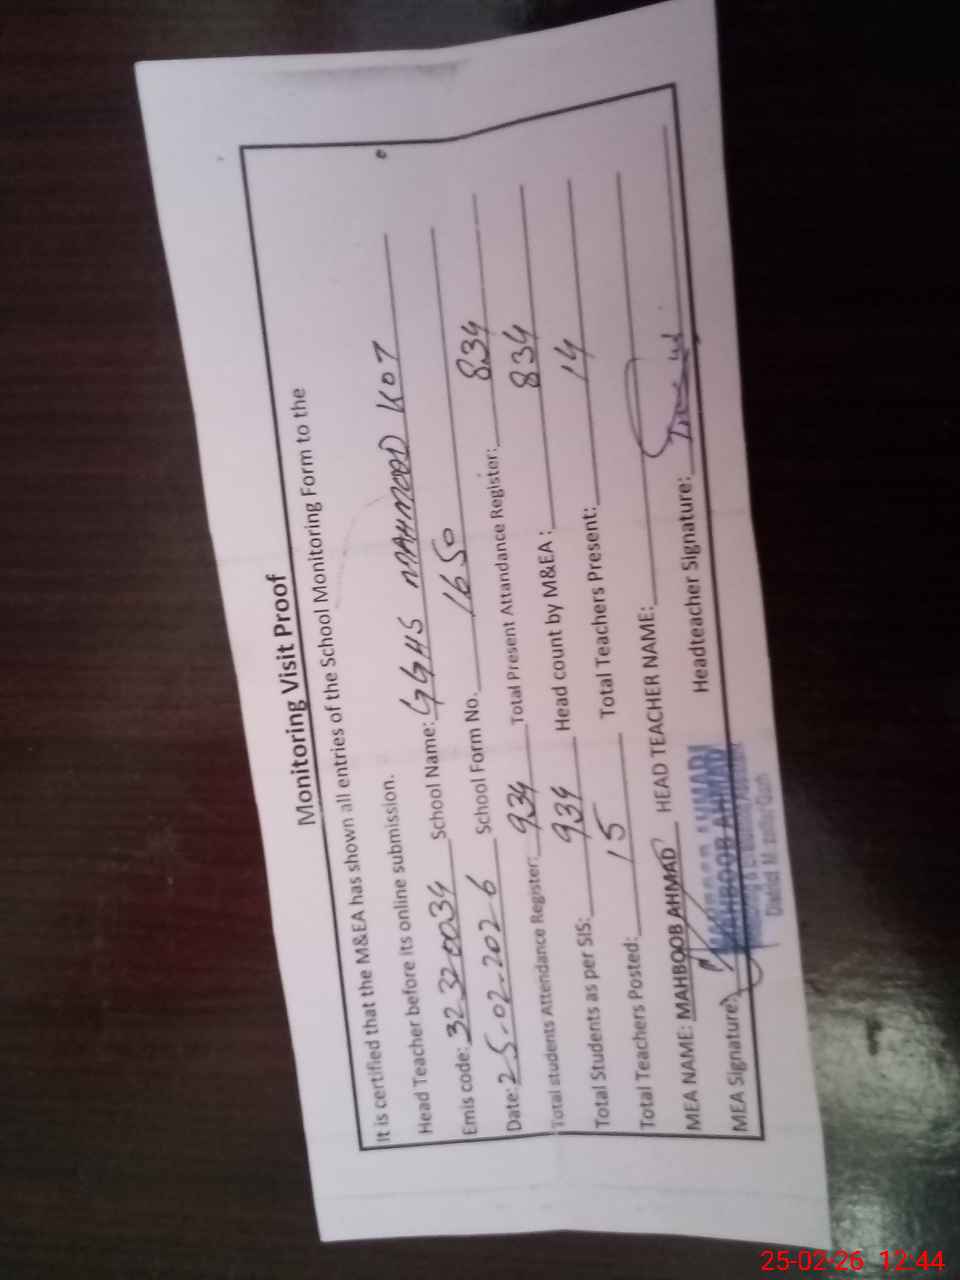 Monitoring Visit Proof
It is certified that the M&EA has shown all entries of the School Monitoring Form to the
Head Teacher before its online submission.
Emis code: 32320034 School Name: GGHS MAHMOOD KOT
Date: 25-02-2026 School Form No. 1650
Total students Attendance Register: 934 Total Present Attandance Register: 834
Total Students as per SIS: 934 Head count by M&EA : 834
Total Teachers Posted: 15 Total Teachers Present: 14
MEA NAME: MAHBOOB AHMAD HEAD TEACHER NAME:
MEA Signature: Headteacher Signature:
MAHBOOB AHMAD
25-02-26 12:44